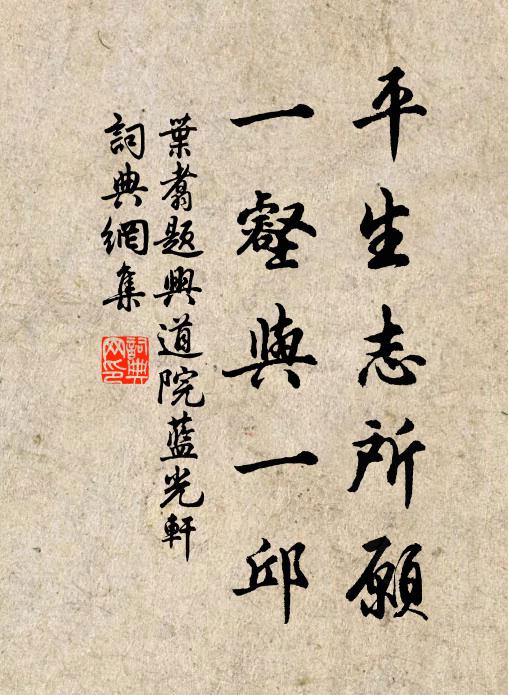 平生志所願
一壑與一邱
葉翥題興道院藍光軒
詞典網集
詞典
网印